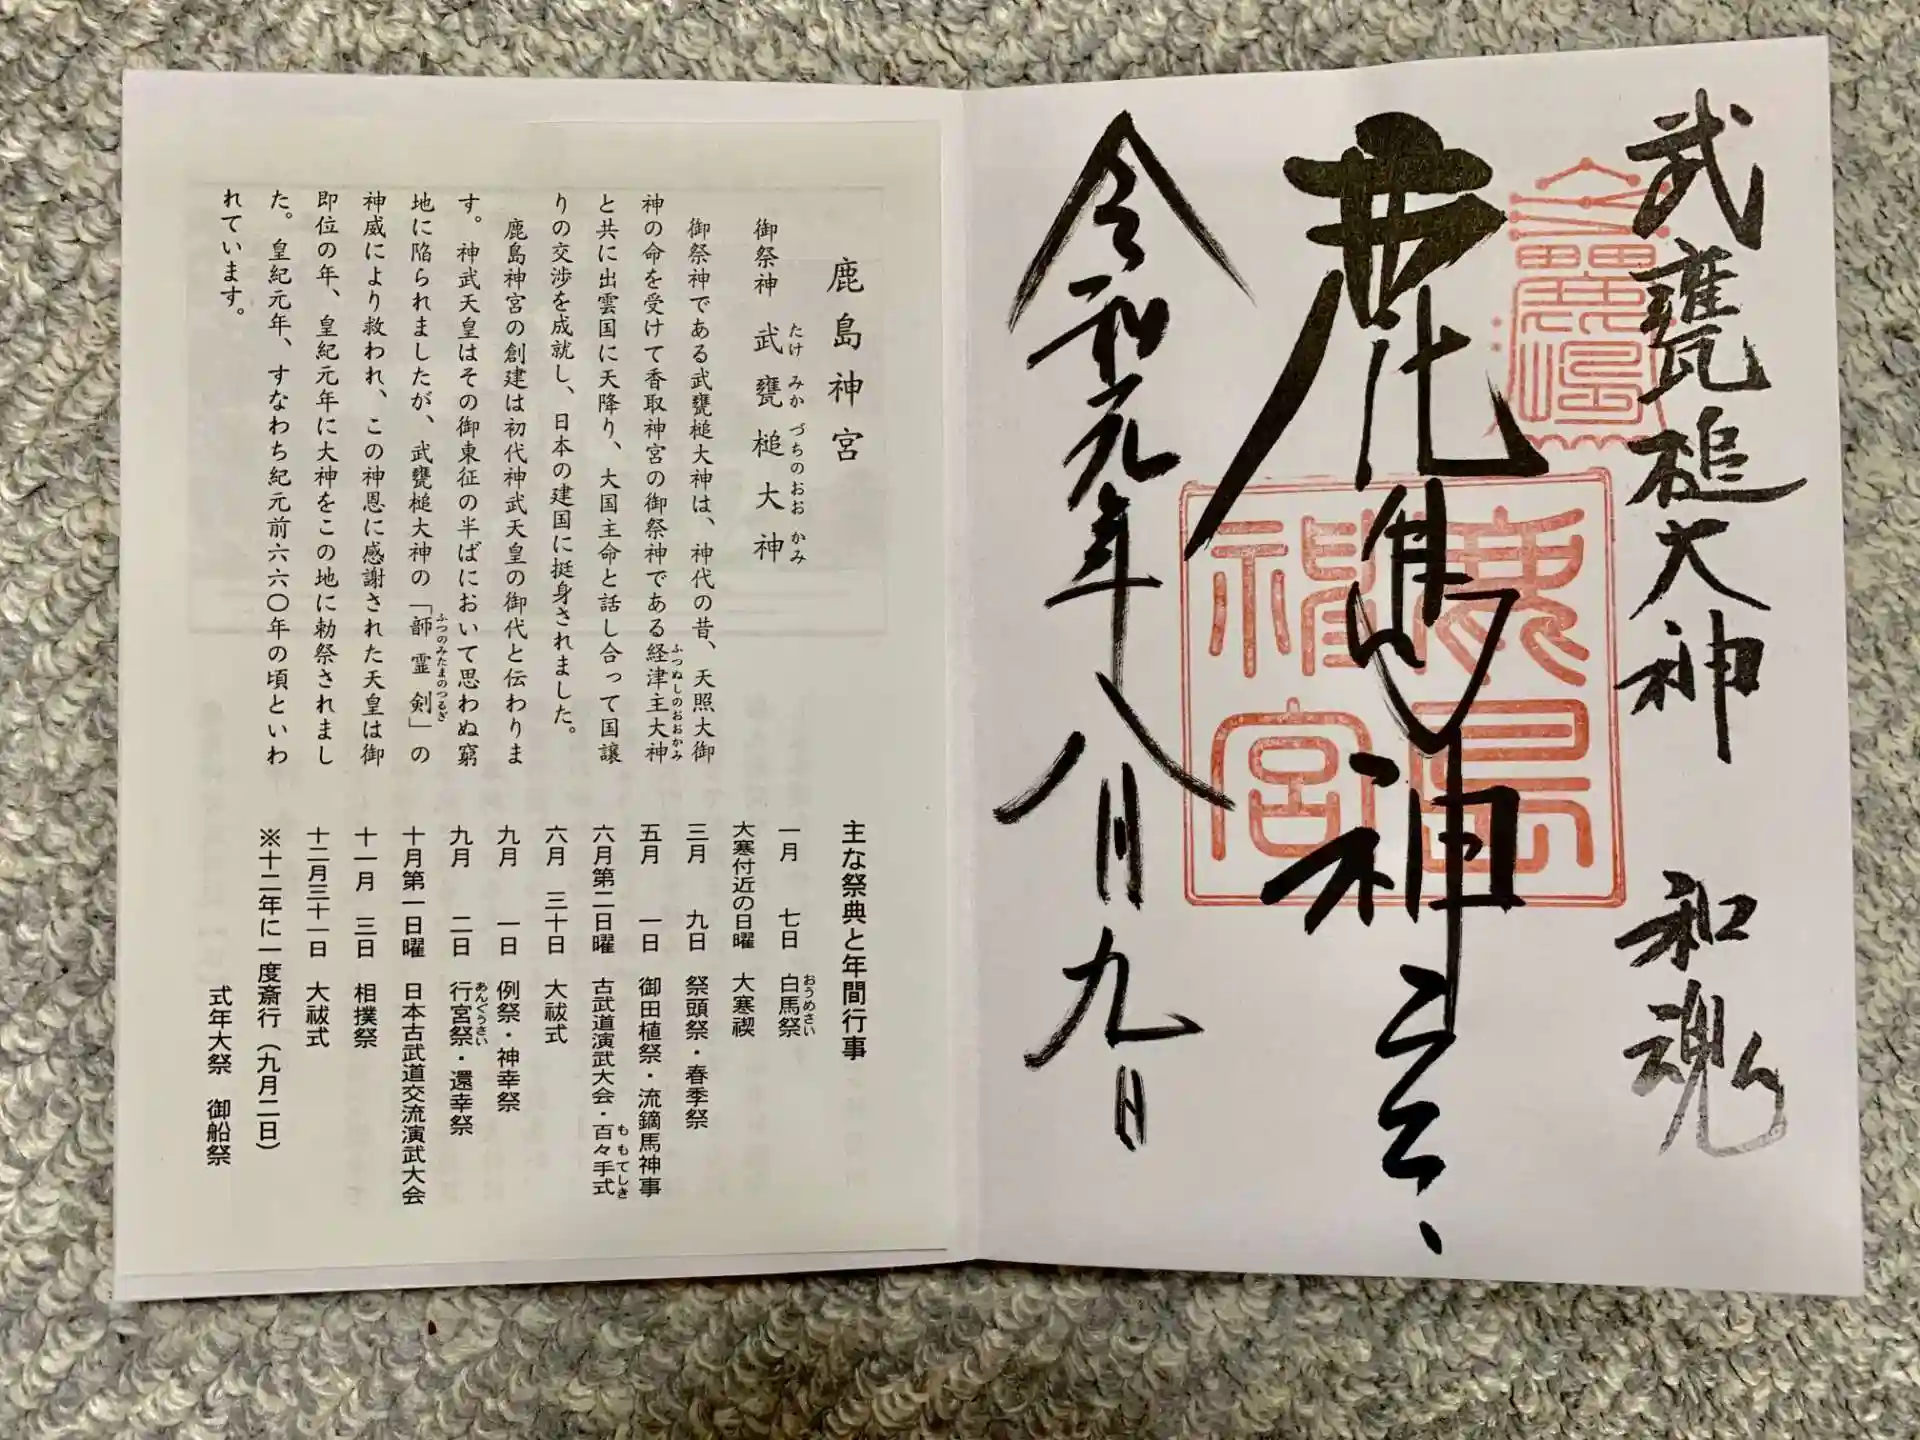 武甕槌大神 和魂
鹿島神宮
鹿島神宮
令和元年八月九日
鹿島神宮
御祭神 武甕槌大神
たけ みか づちのおお かみ
御祭神である武甕槌大神は、神代の昔、天照大御
神の命を受けて香取神宮の御祭神である経津主大神
ふつぬしのおおかみ
と共に出雲国に天降り、大国主命と話し合って国譲
りの交渉を成就し、日本の建国に挺身されました。
鹿島神宮の創建は初代神武天皇の御代と伝わりま
す。神武天皇はその御東征の半ばにおいて思わぬ窮
地に陥られましたが、武甕槌大神の「韴霊剣」の
ふつのみたまのつるぎ
神威により救われ、この神恩に感謝された天皇は御
即位の年、皇紀元年に大神をこの地に勅祭されまし
た。皇紀元年、すなわち紀元前六六〇年の頃といわ
れています。
主な祭典と年間行事
一月 七日 白馬祭
おうめさい
大寒付近の日曜 大寒禊
三月 九日 祭頭祭・春季祭
五月 一日 御田植祭・流鏑馬神事
六月第二日曜 古武道演武大会・百々手式
ももてしき
六月 三十日 大祓式
九月 一日 例祭・神幸祭
九月 二日 行宮祭・還幸祭
あんぐうさい
十月第一日曜 日本古武道交流演武大会
十一月 三日 相撲祭
十二月三十一日 大祓式
※十二年に一度斎行（九月二日）
式年大祭 御船祭